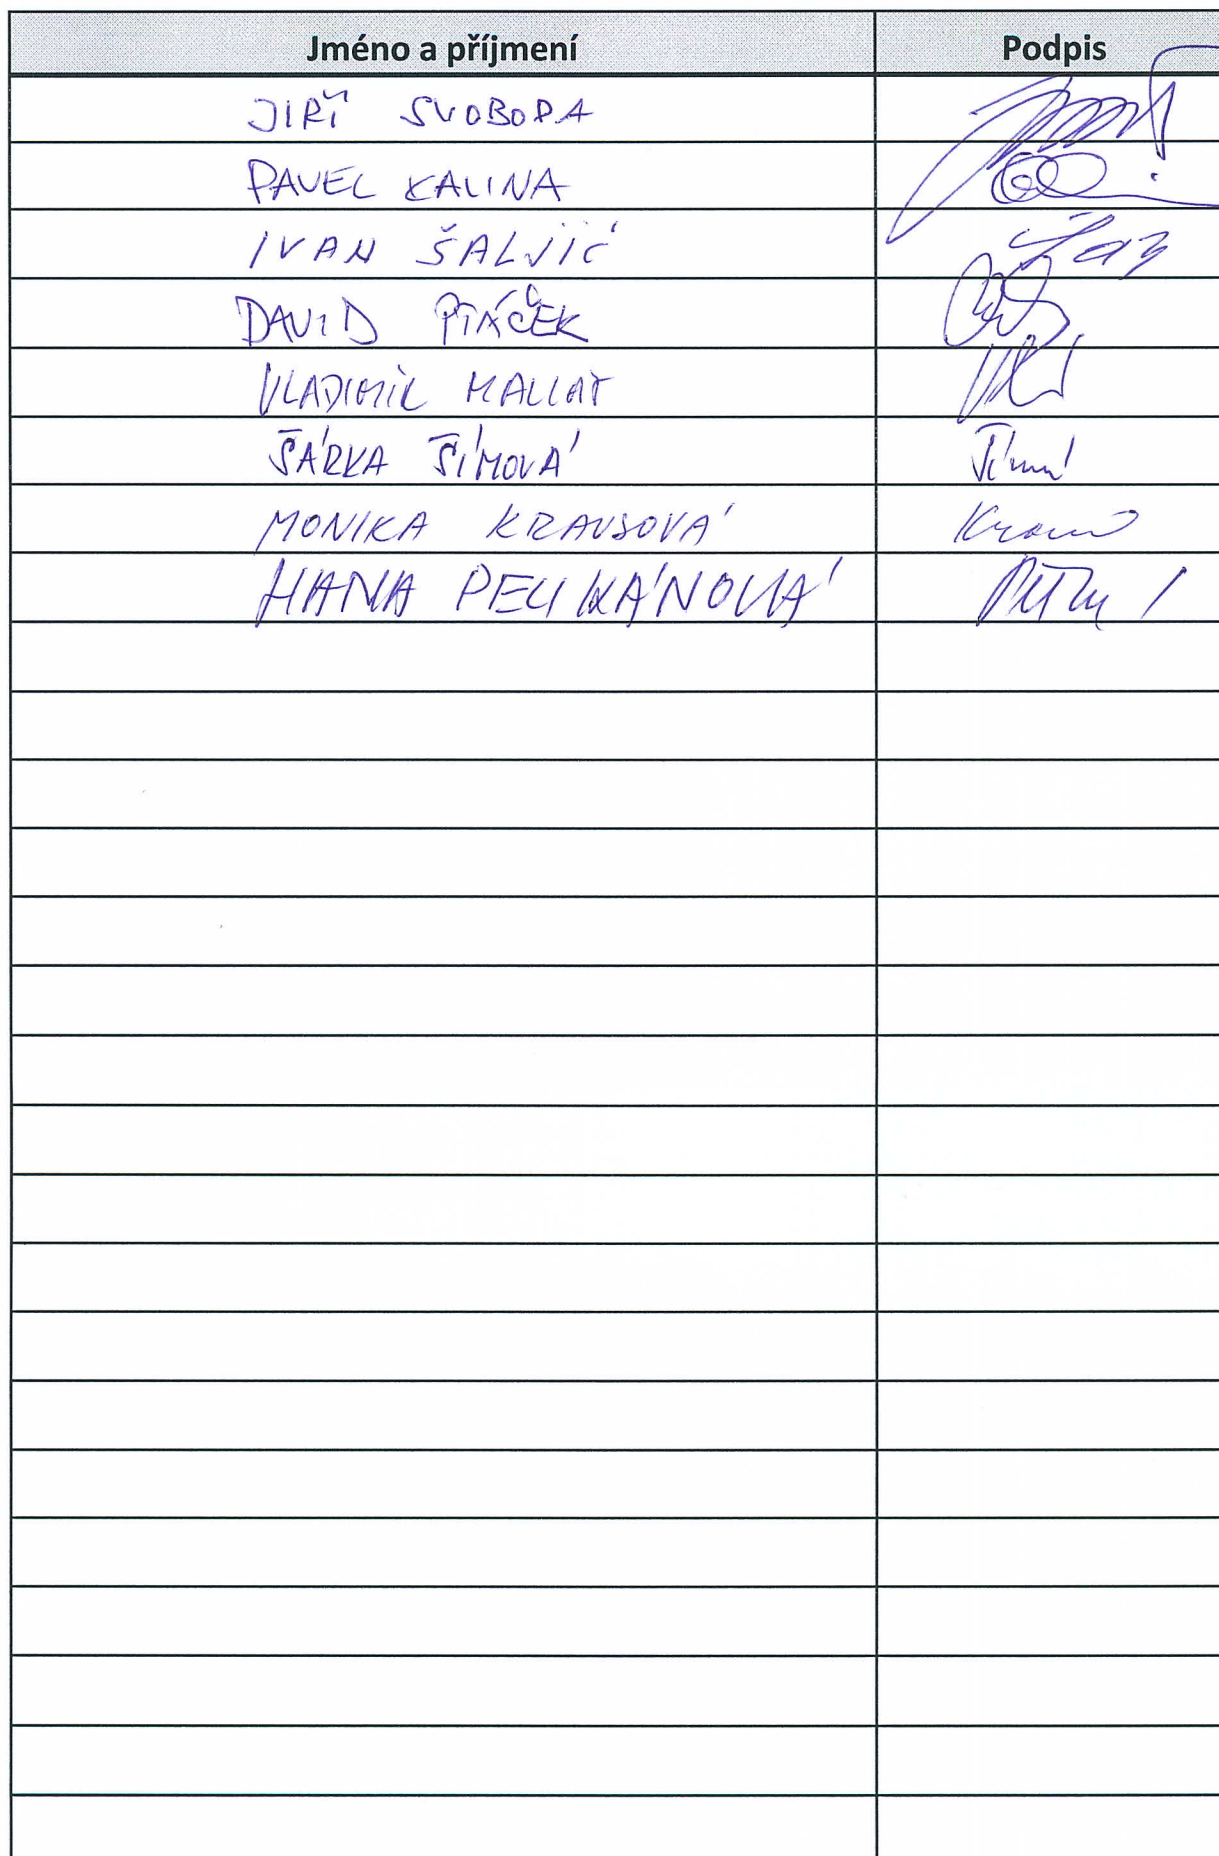 Jméno a příjmení Podpis
JIŘÍ SVOBODA
PAVEL KALINA
IVAN ŠALJIĆ
DAVID PTÁČEK
VLADIMÍR MALLAT
ŠÁRKA ŠÍMOVÁ
MONIKA KRAUSOVÁ
HANA PELIKÁNOVÁ